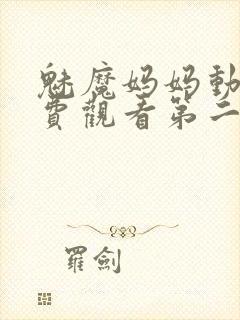 魅魔妈妈動
費觀看第二
羅劍